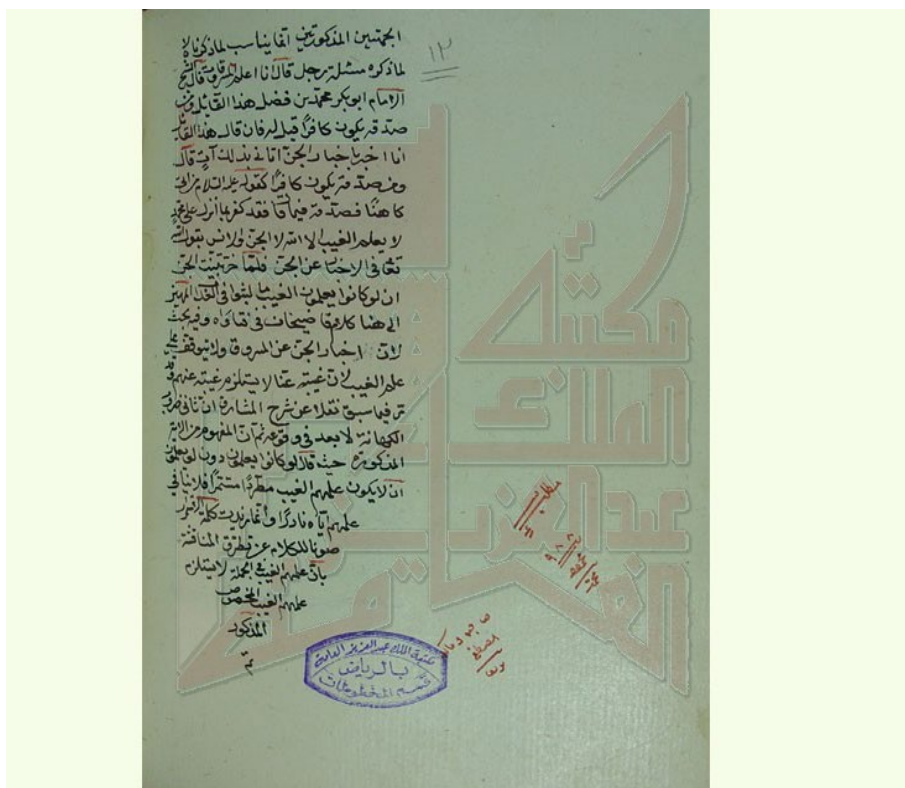 ١٢
الجهتين المذكورتين انما يناسب لماذكرناه لا
لماذكره مسئلة رجل قال انا اعلم المسروقات قال الشيخ
الامام ابو بكر محمد بن فضل هذا القائل ومن
صدقه يكون كافرا قيل له فان قال هذا القائل
انا اخبر باخبار الجن اتانى بذلك قال
ومن صدقه يكون كافرا كقوله عليه السلام من اتى
كاهنا فصدقه فيما قال فقد كفر بما انزل على محمد
لا يعلم الغيب الا الله لا الجن ولا انس بقول الله
تعالى فى الاخبار عن الجن فلما خر تبينت الجن
ان لو كانوا يعلمون الغيب ما لبثوا فى العذاب المهين
الى هنا كلام قاضيخان فى فتاواه وفيه بحث
لان اخبار الجن عن المسروقات لا يتوقف على
علم الغيب لان غيبته عنا لا يستلزم غيبته عنهم وقد
مر فيما سبق نقلا عن شرح المشارق ان ثانى ضروب
الكهانة لا بعد فى وقوعه ثم ان المفهوم من الاية
المذكورة حيث قال لو كانوا يعلمون دون لو يعلمون
ان لا يكون علمهم الغيب مطردا مستمرا فلا ينافى
علمهم اياه نادرا وانما زيدت كلمة
صونا للكلام عن تطرق المناقشة
بان علمهم الغيب فى الجملة لا يستلزم
علمهم الغيب المخصوص
المذكور
مكتبة الملك عبد العزيز العامة
بالرياض
قسم المخطوطات
مكتبة
الملك
عبد العزيز
العامة